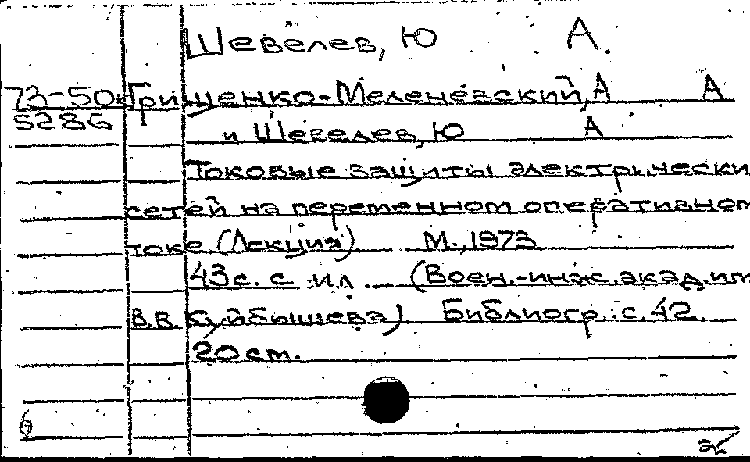 Шевелев, Ю А.
73-50к Грищенко-Меленевский, А А
5286 и Шевелев, Ю А
Токовые защиты электрически
сетей на переменном оперативном
токе (Лекция) М., 1973
43с. с ил. (Воен.-инж. акад. им
В.В. Куйбышева) Библиогр.: с. 42.
20 см.